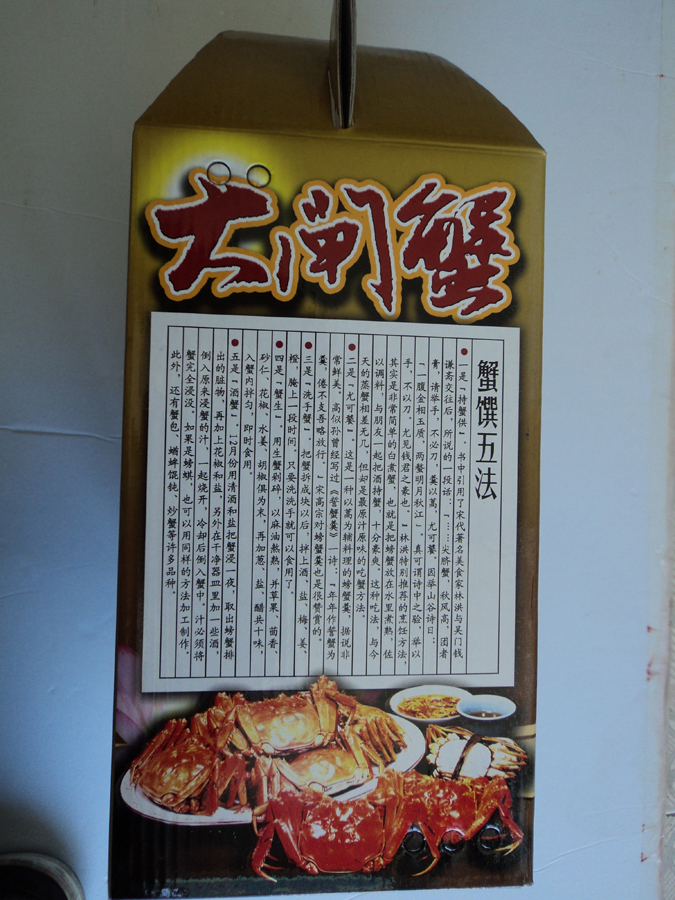 大闸蟹
蟹馔五法
●一是“持蟹供”。书中引用了宋代著名美食家林洪与吴门钱
谦斋交往后，所说的一段话：……尖脐蟹，秋风高，团者
膏，请举手，不必刀，羹以蒿，尤可饕，因举山谷诗曰：
“一腹金相玉质，两螯明月秋江”。真可谓诗中之验，举以
手，不以刀，尤见钱君之豪也。”林洪特别推荐的烹饪方法，
其实是非常简单的白煮蟹，也就是把螃蟹放在水里煮熟，佐
以调料，与朋友一起把酒持蟹，十分豪爽。这种吃法，与今
天的蒸蟹相差无几，但却是最原汁原味的吃蟹方法。
●二是“尤可饕”，这是一种以蒿为辅料理的螃蟹羹，据说非
常鲜美。高似孙曾经写过《誓蟹羹》一诗，“年年作誓蟹为
羹，倦不支吾略放行。”宋高宗对螃蟹羹也是很赞赏的。
●三是“洗手蟹”，把蟹拆成块以后，拌上酒、盐、梅、姜、
橙，腌上一段时间，只要洗洗手就可以食用了。
●四是“蟹生”，用生蟹剁碎，以麻油熬熟，并草果、茴香、
砂仁、花椒、水姜、胡椒俱为末，再加葱、盐、醋共十味，
入蟹内拌匀，即时食用。
●五是“酒蟹”，12月份用清酒和盐把蟹浸一夜，取出螃蟹排
出的脏物，再加上花椒和盐，另外在干净器皿里加一些酒，
倒入原来浸蟹的汁，一起烧开，冷却后倒入蟹中，汁必须将
蟹完全浸没。如果是螃蜞，也可以用同样的方法加工制作。
此外，还有蟹包、蝤蛑馄饨、炒蟹等许多品种。